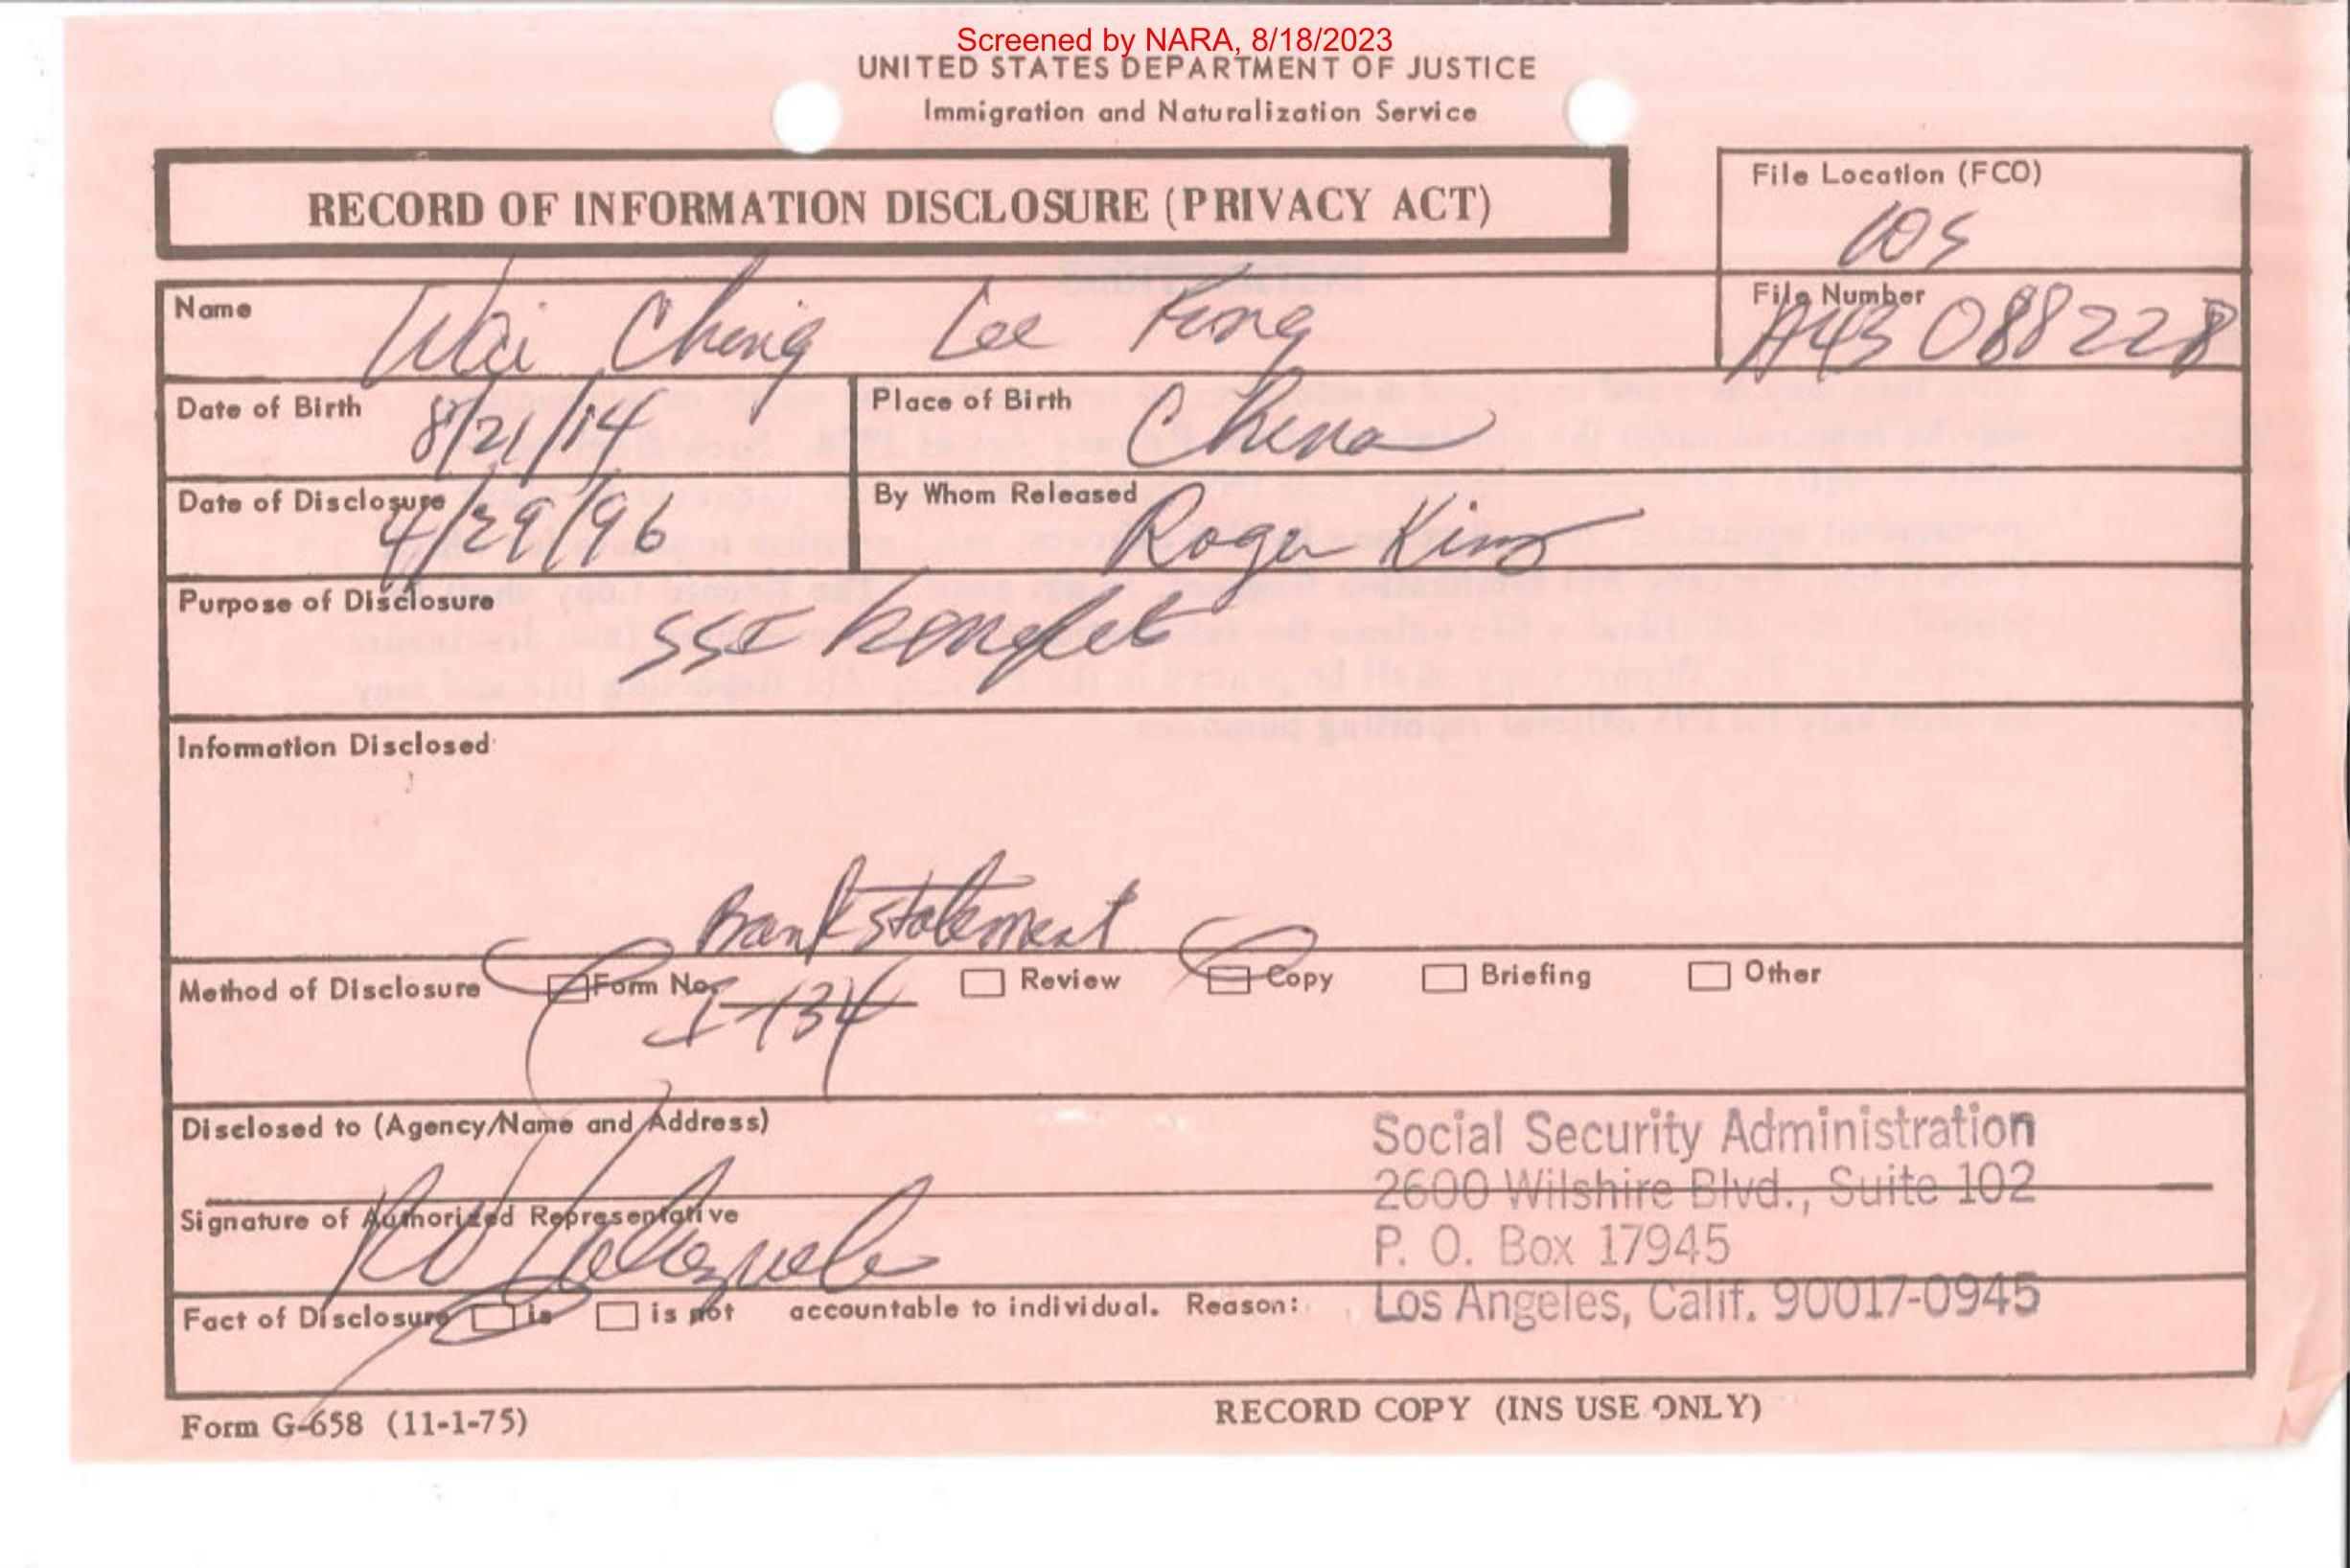 Screened by NARA, 8/18/2023
UNITED STATES DEPARTMENT OF JUSTICE
Immigration and Naturalization Service
RECORD OF INFORMATION DISCLOSURE (PRIVACY ACT)
File Location (FCO)
LOS
Name
Wai Ching Lee Fong
File Number
A43 088 228
Date of Birth
8/21/14
Place of Birth
China
Date of Disclosure
4/29/96
By Whom Released
Roger Kim
Purpose of Disclosure
SSI benefit
Information Disclosed
Bank statement
Method of Disclosure Form No. Review Copy Briefing Other
I-134
Disclosed to (Agency/Name and Address)
Social Security Administration
2600 Wilshire Blvd., Suite 102
Signature of Authorized Representative
P. O. Box 17945
Los Angeles, Calif. 90017-0945
Fact of Disclosure is is not accountable to individual. Reason:
Form G-658 (11-1-75)
RECORD COPY (INS USE ONLY)